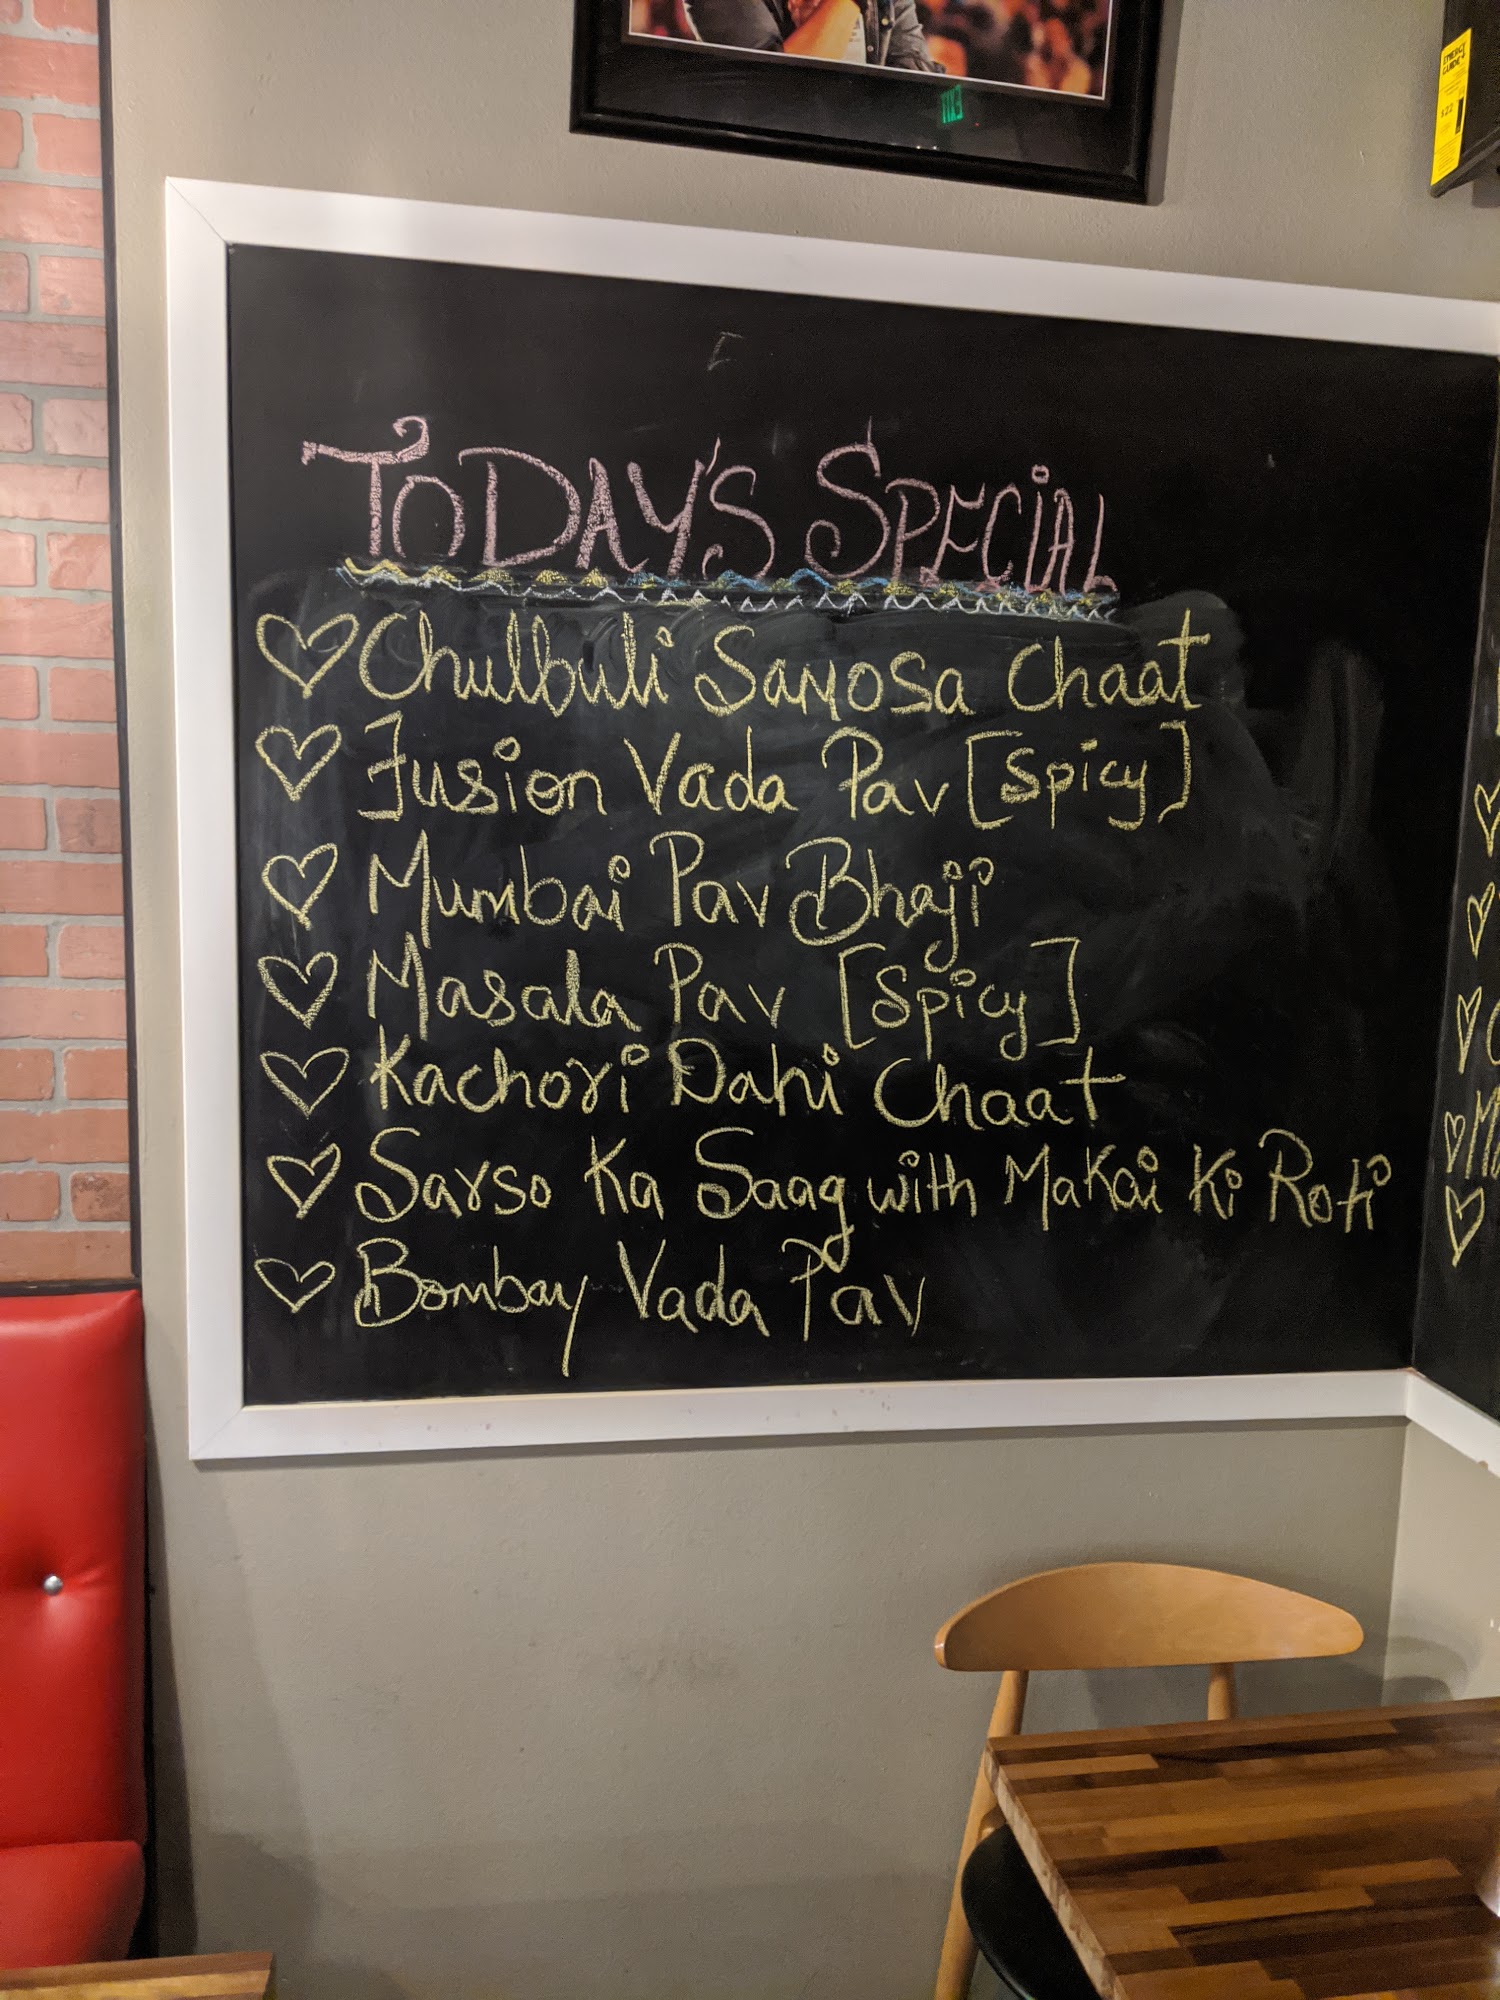 ENERGY
GUIDE
$22
EXIT
TODAY'S SPECIAL
Chulbuli Samosa Chaat
Fusion Vada Pav [Spicy]
Mumbai Pav Bhaji
Masala Pav [Spicy]
Kachori Dahi Chaat
Sarso Ka Saag with Makai Ki Roti
Bombay Vada Pav